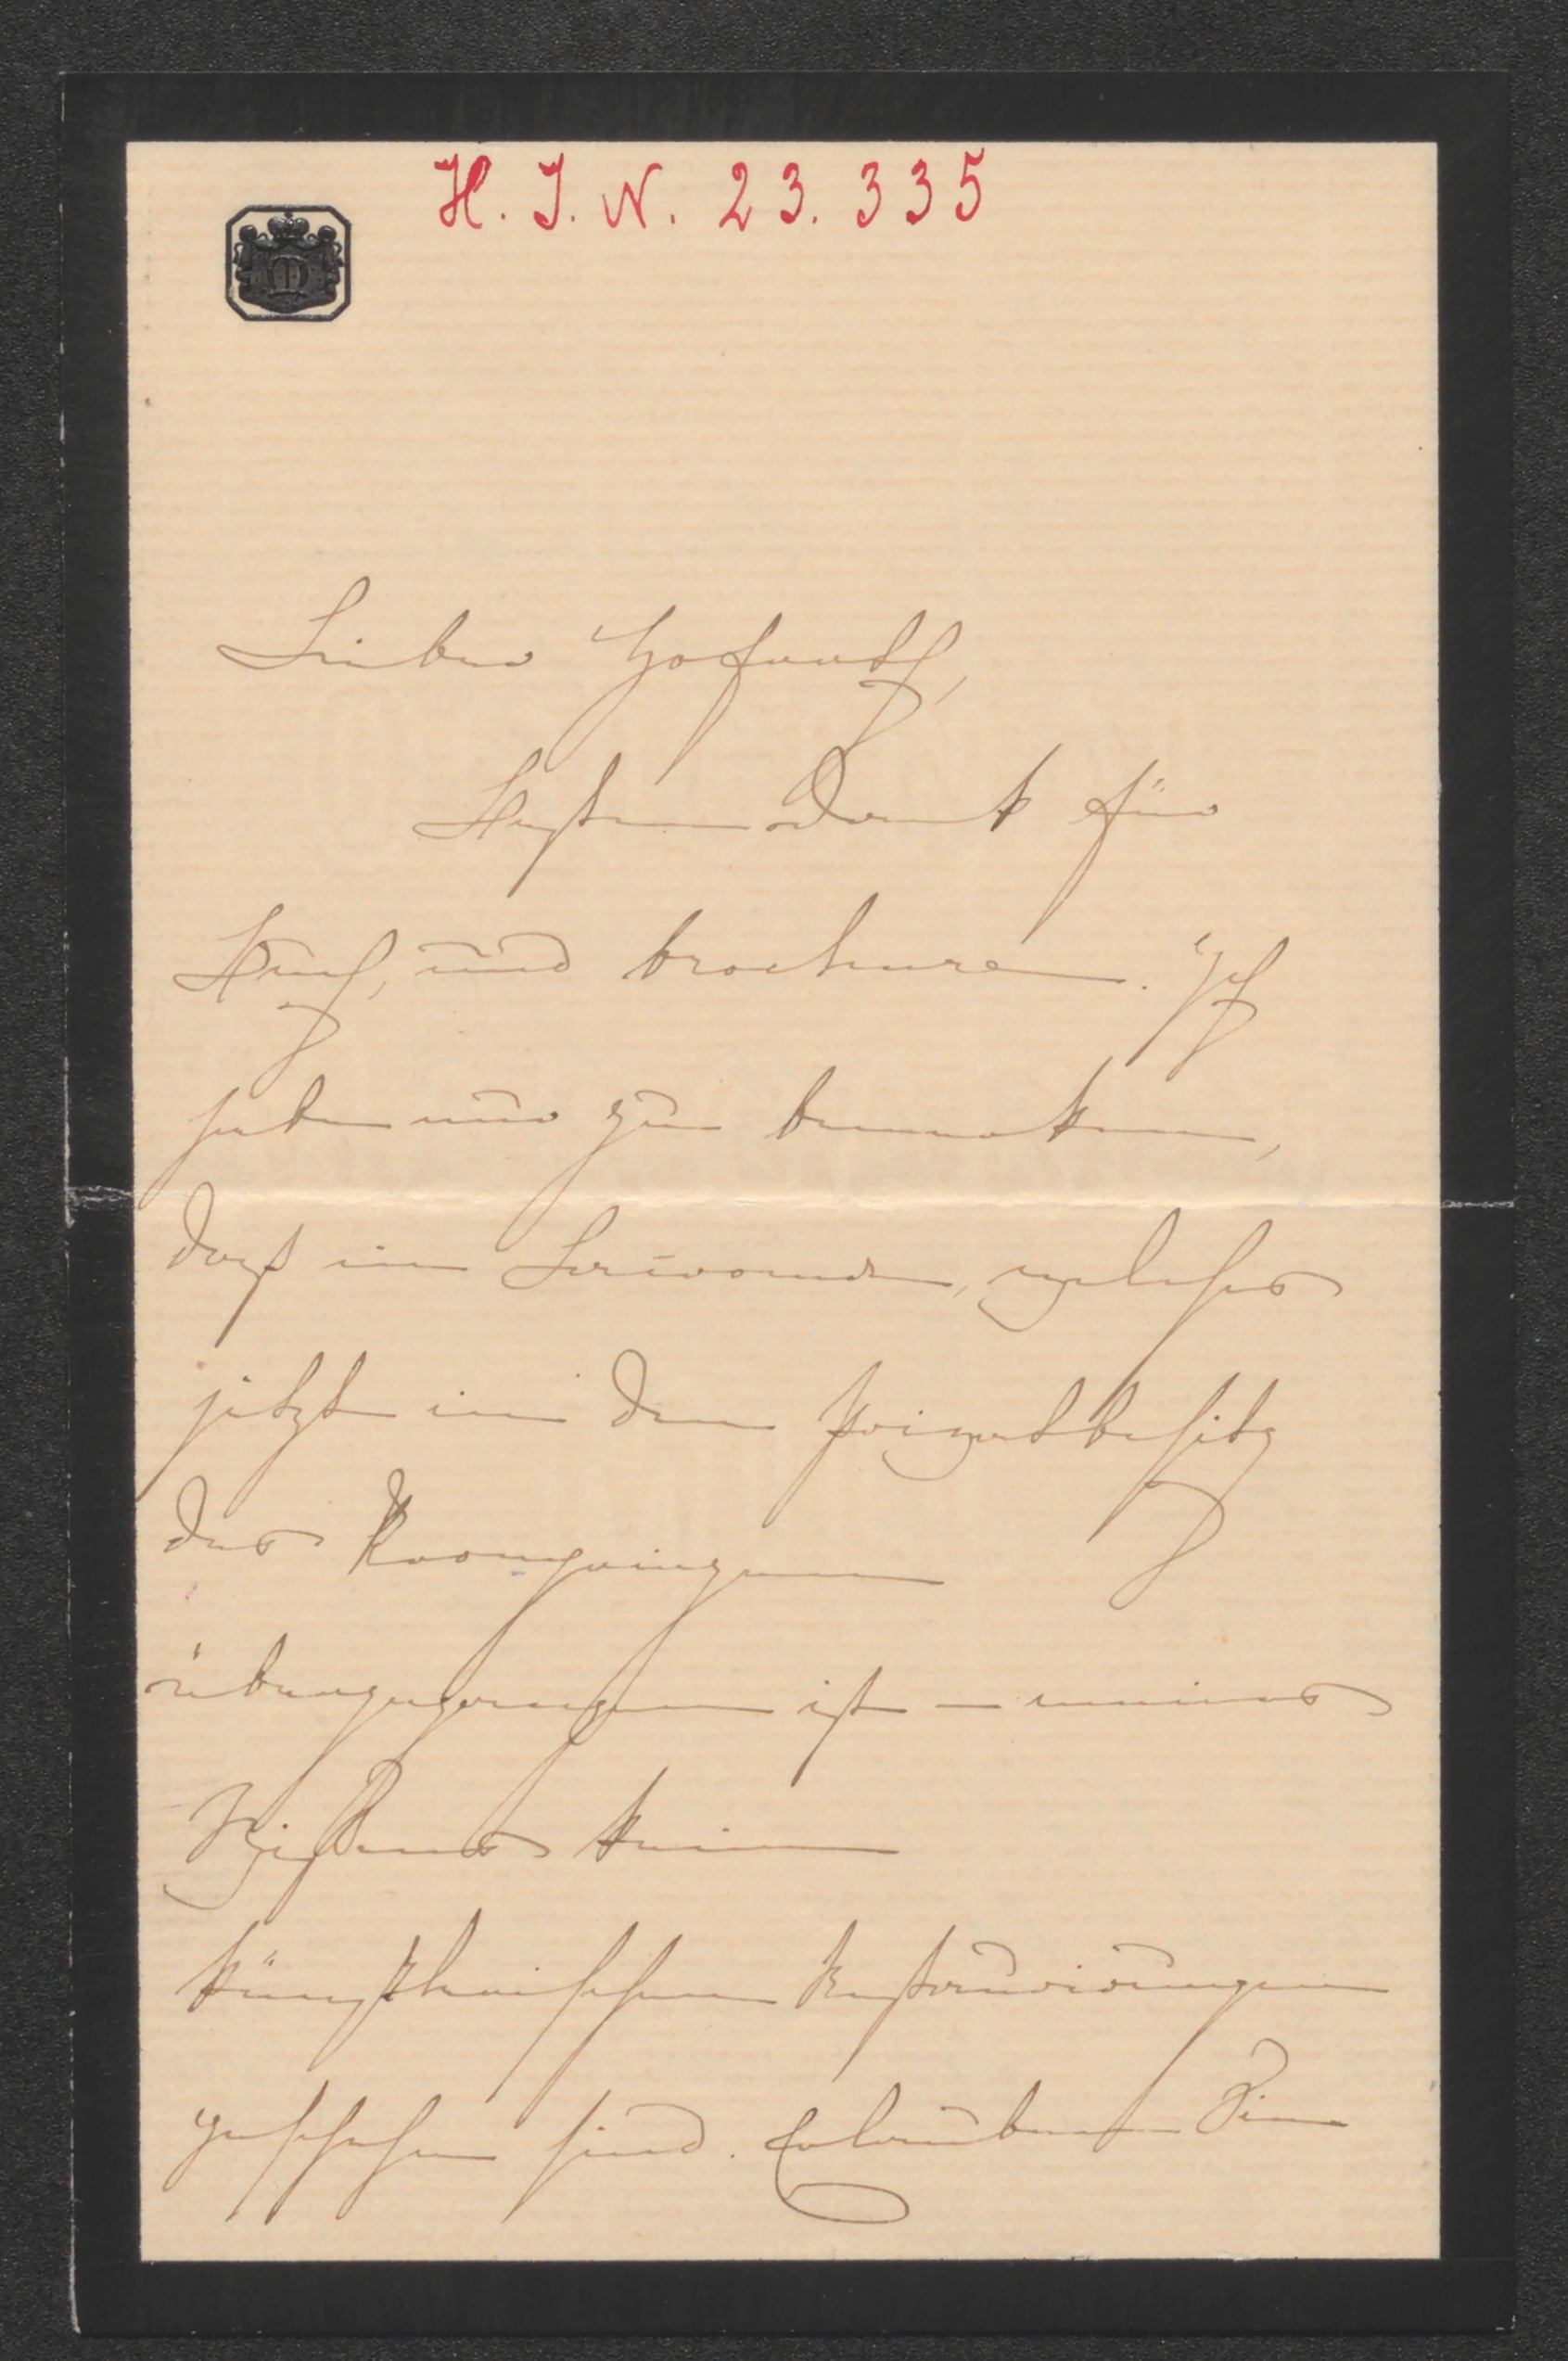 H. I. N. 23.335
Lieber Hofrath,
Besten Dank für
Buch, und brochure. Ich
habe nur zu bemerken,
daß in Lacroma, welches
jetzt in den Privatbesitz
der Kronprinzessin
übergegangen ist – meines
Wissens keine
künstlerischen Restaurirungen
geschehen sind. Erlauben Sie